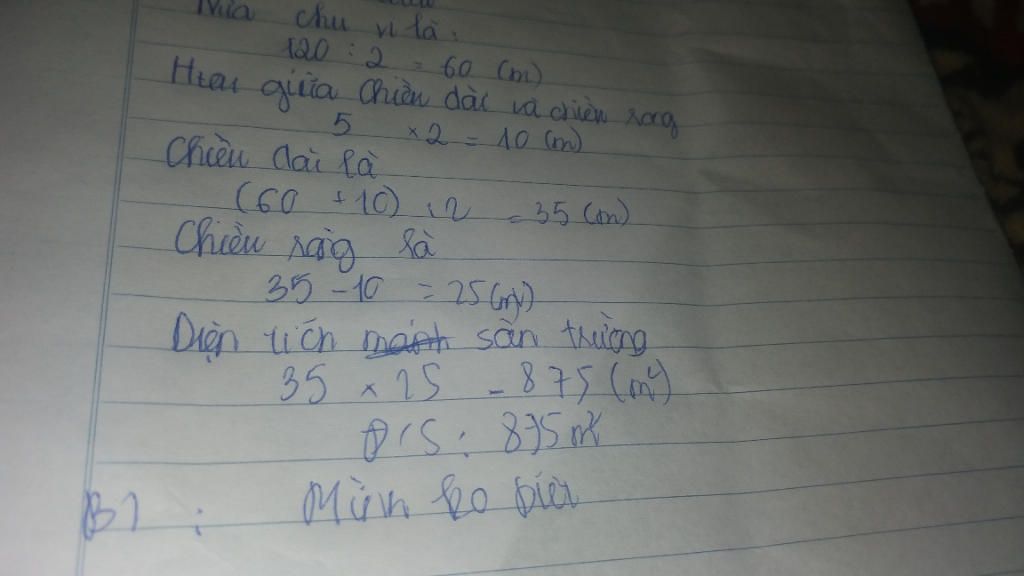 Nửa chu vi là:
120 : 2 = 60 (m)
Hiệu giữa chiều dài và chiều rộng
5 × 2 = 10 (m)
Chiều dài là
(60 + 10) : 2 = 35 (m)
Chiều rộng là
35 - 10 = 25 (m)
Diện tích sân trường
35 × 25 = 875 (m²)
Đ/S: 875 m²
B7 : Mình ko biết